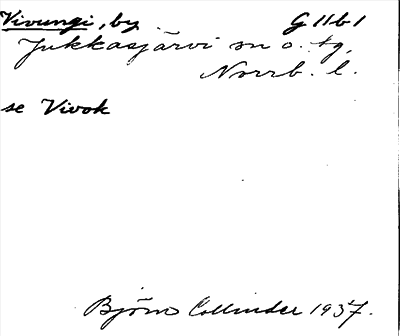 Vivungi, by. G 11 b 1
Jukkasjärvi sn o. tg,
Norrb. l.
se Vivok
Björn Collinder 1937.